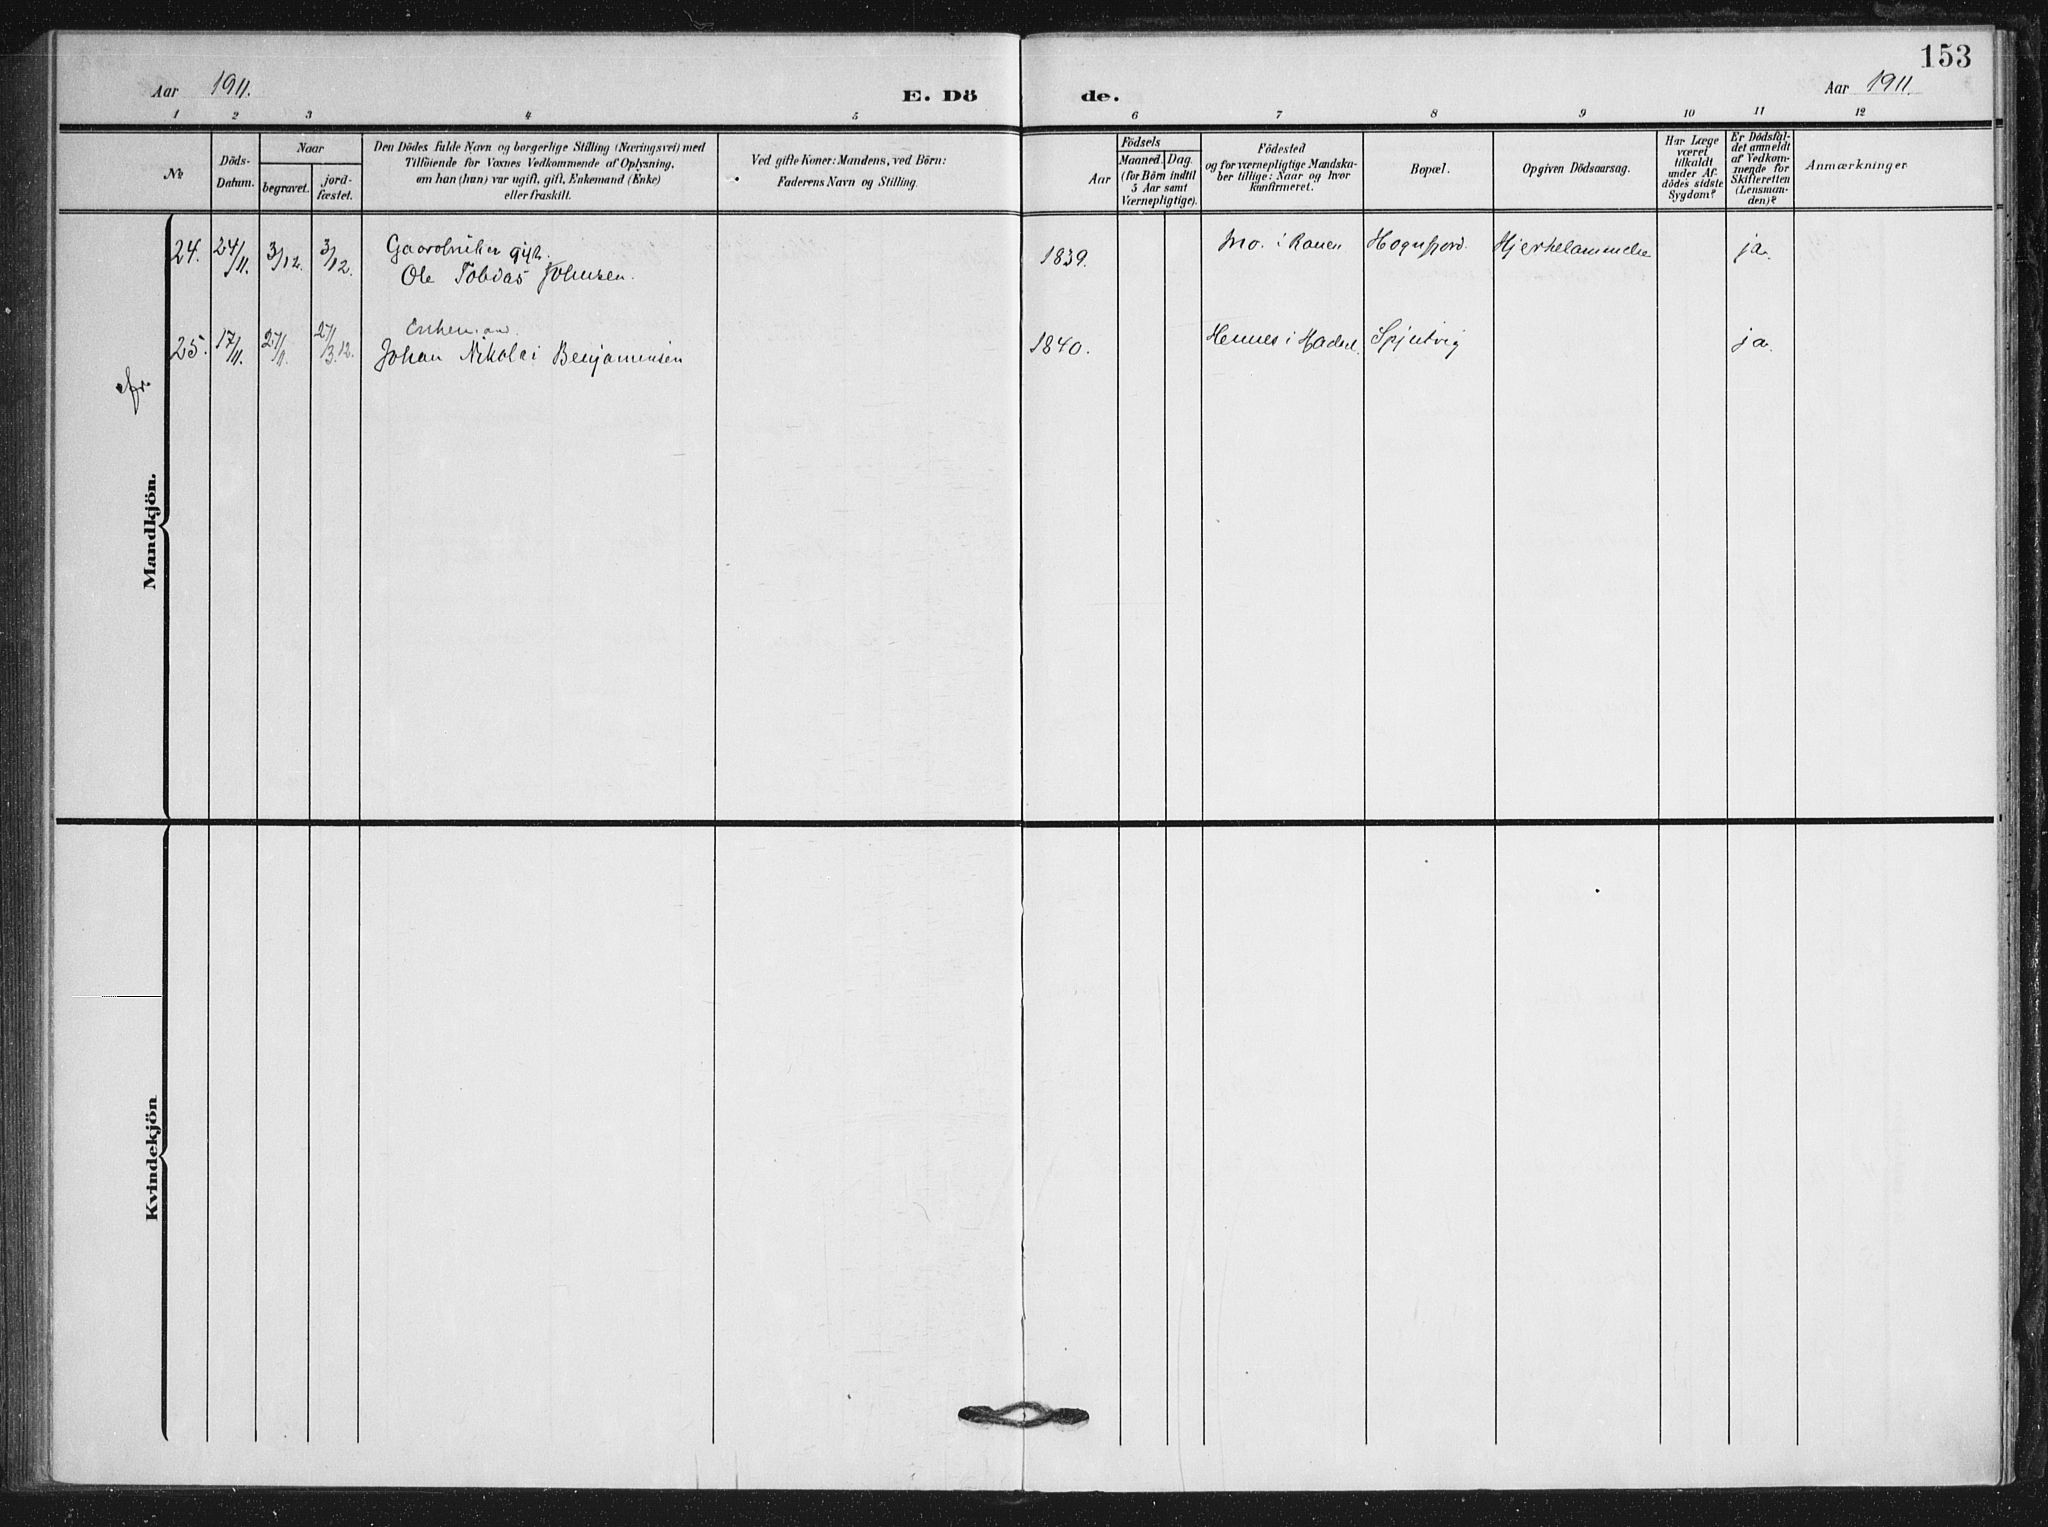 153
Aar 1911.
E. Dö de.
Aar 1911.
1 2 3 4 5 6 7 8 9 10 11 12
No
Döds-
Datum.
Naar
begravet.
jord-
fæstet.
Den Dödes fulde Navn og borgerlige Stilling (Næringsvei) med
Tilföiende for Voxnes Vedkommende af Oplysning,
om han (hun) var ugift, gift, Enkemand (Enke)
eller fraskilt.
Ved gifte Koner: Mandens, ved Börn:
Faderens Navn og Stilling.
Födsels
Aar
Maaned. Dag.
(for Börn indtil
5 Aar samt
Værnepligtige).
Födested
og for værnepligtige Mandska-
ber tillige: Naar og hvor
Konfirmeret.
Bopæl.
Opgiven Dödsaarsag.
Har Læge
været
tilkaldt
under Af-
dödes sidste
Sygdom?
Er Dödsfal-
det anmeldt
af Vedkom-
mende for
Skifteretten
(Lensman-
den)?
Anmærkninger
Mandkjön.
24. 24/11. 3/12. 3/12. Gaardbruker gift.
Ole Tobias Johnsen. 1839. Mo. i Ranen Hognfjord. Hjertelammelse ja.
Enkemand.
25. 17/11. 27/11. 27/3.12. Johan Nikolai Benjaminsen 1840. Hennes i Hadsel. Spjutvig ja.
cfr.
Kvindekjön